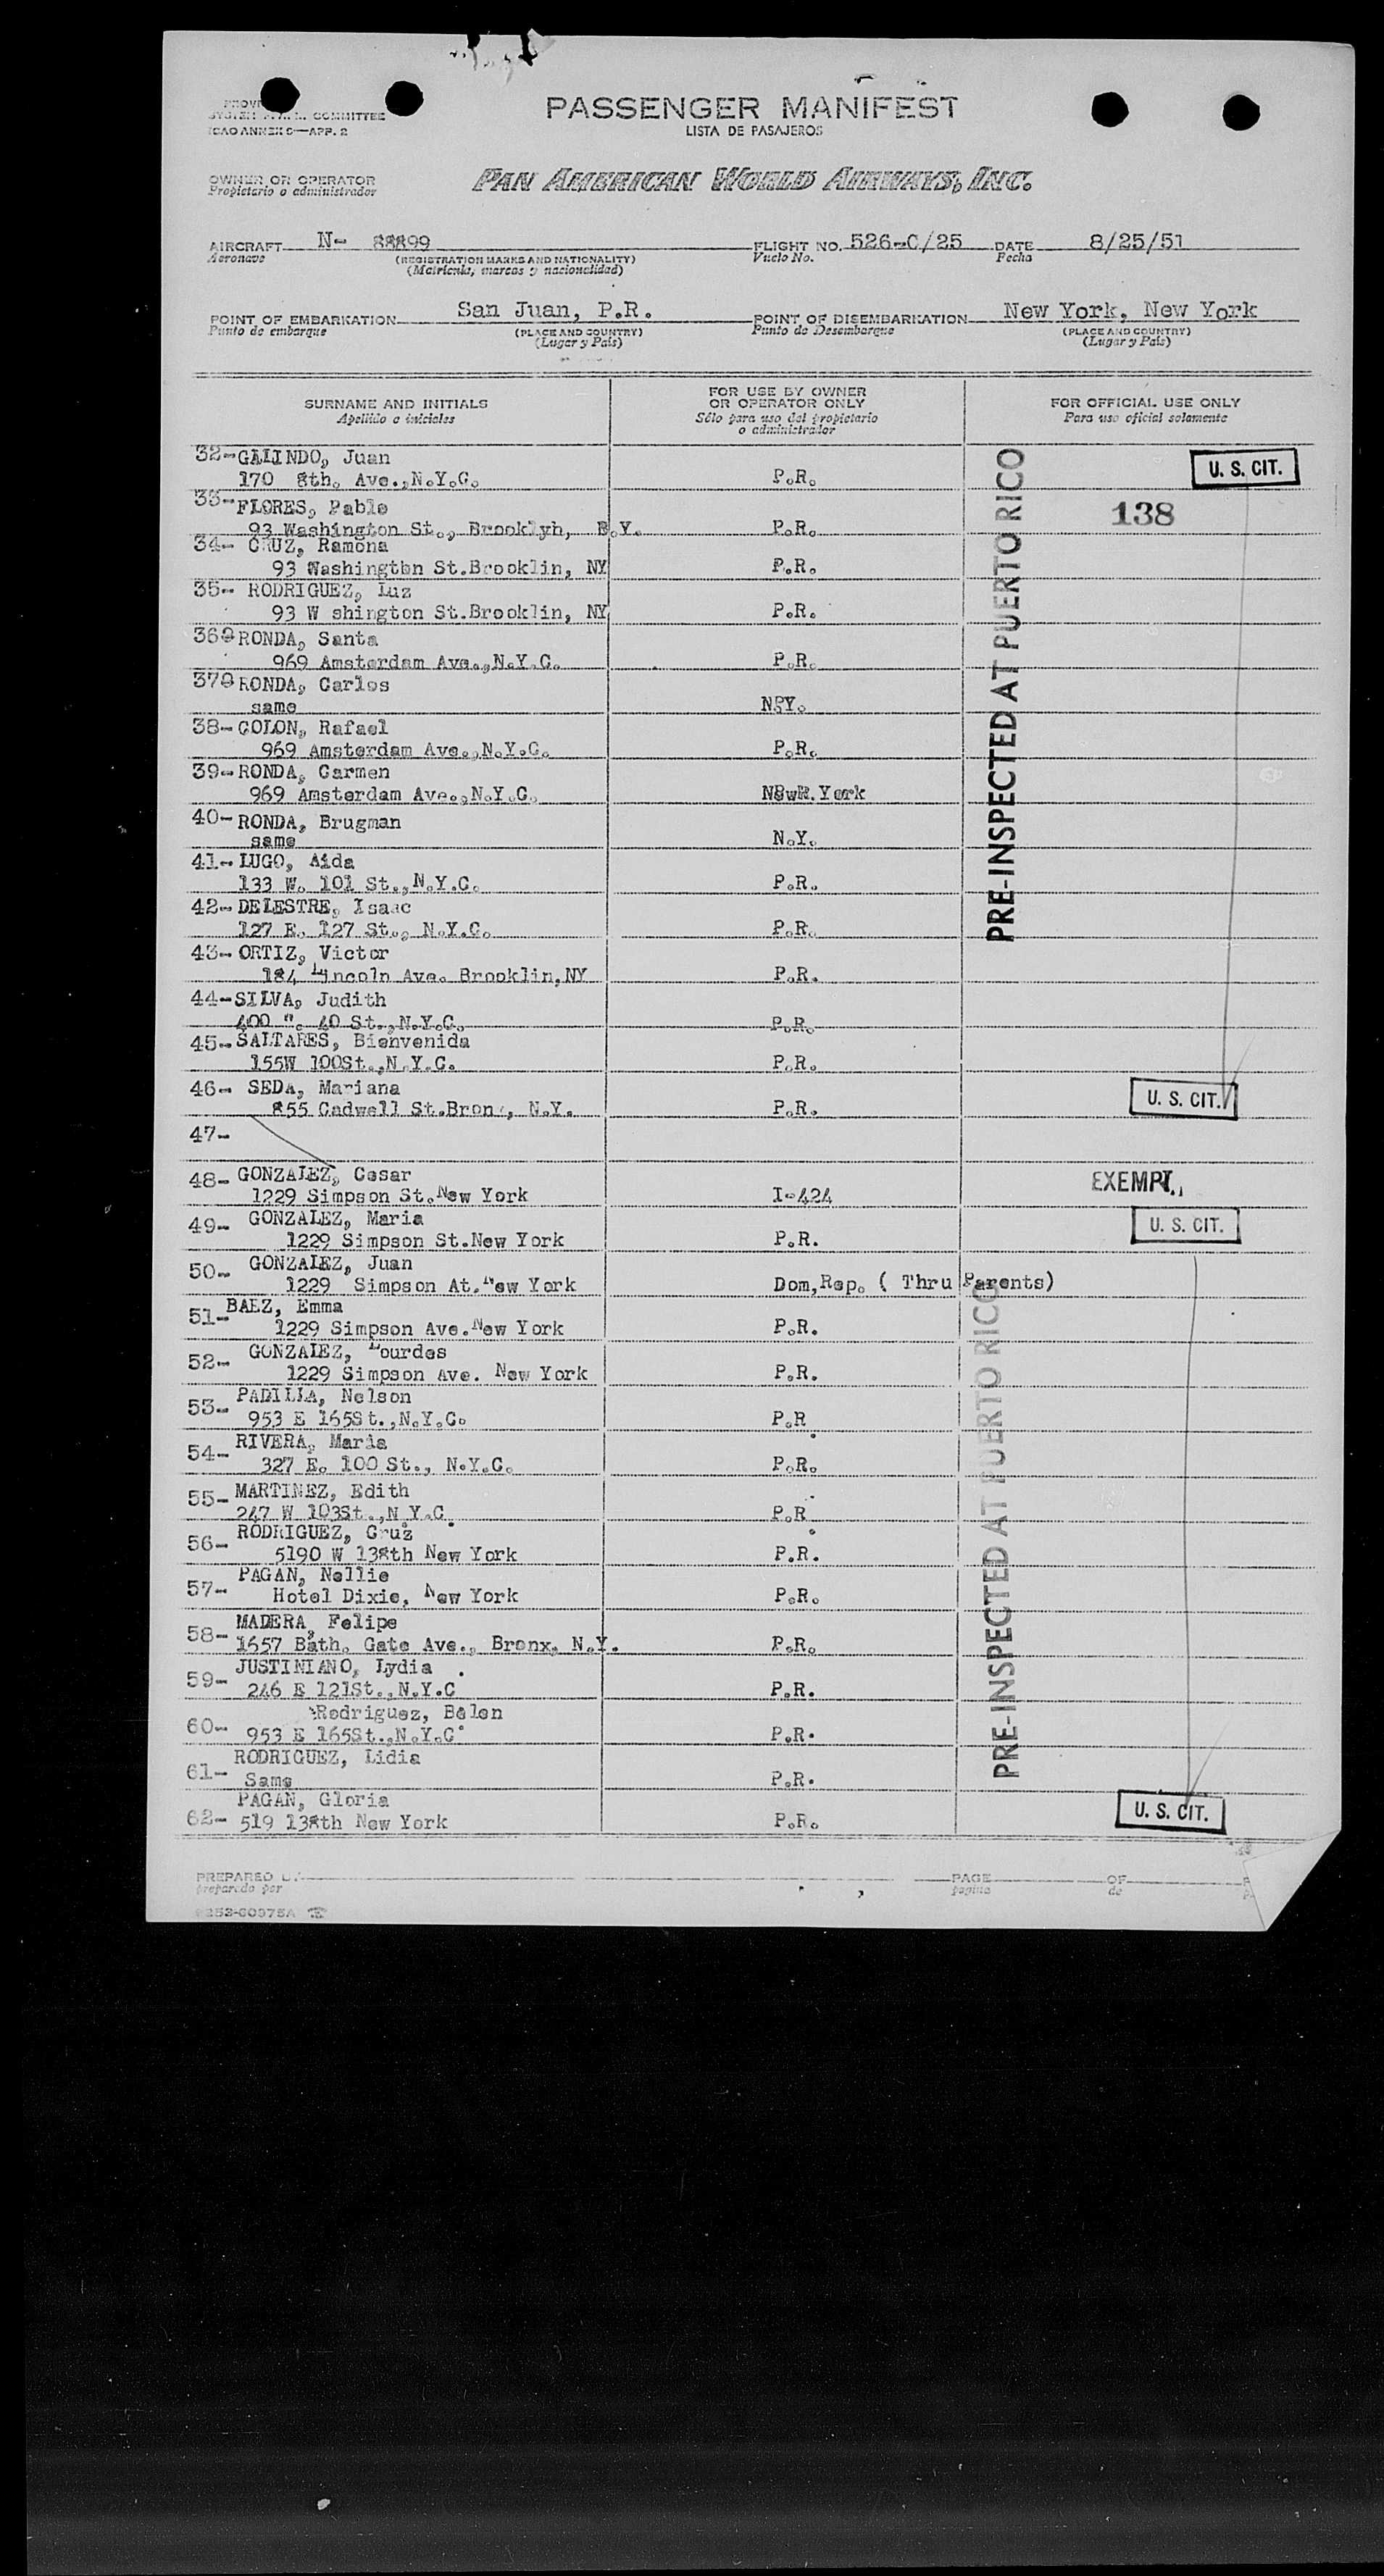 SYSTEM COMMITTEE
ICAO ANNEX 9—APP. 2
PASSENGER MANIFEST
LISTA DE PASAJEROS
OWNER OR OPERATOR
Propietario o administrador
PAN AMERICAN WORLD AIRWAYS, INC.
AIRCRAFT N- 88899 FLIGHT NO. 526-C/25 DATE 8/25/51
Aeronave (REGISTRATION MARKS AND NATIONALITY) Vuelo No. Fecha
(Matrícula, marcas y nacionalidad)
POINT OF EMBARKATION San Juan, P.R. POINT OF DISEMBARKATION New York, New York
Punto de embarque (PLACE AND COUNTRY) Punto de Desembarque (PLACE AND COUNTRY)
(Lugar y País) (Lugar y País)
SURNAME AND INITIALS FOR USE BY OWNER OR OPERATOR ONLY FOR OFFICIAL USE ONLY
Apellido e iniciales Sólo para uso del propietario o administrador Para uso oficial solamente
32-GALINDO, Juan
170 8th. Ave.,N.Y.C. P.R. U. S. CIT.
33-FLORES, Pablo 138
93 Washington St., Brooklyh, N.Y. P.R.
34- CRUZ, Ramona
93 Washington St.Brooklin, NY P.R.
35- RODRIGUEZ, Luz
93 W shington St.Brooklin, NY P.R.
36-RONDA, Santa
969 Amsterdam Ave.,N.Y.C. P.R.
37-RONDA, Carlos
same N.Y.
38-COLON, Rafael
969 Amsterdam Ave.,N.Y.C. P.R.
39-RONDA, Carmen
969 Amsterdam Ave.,N.Y.C. New York
40-RONDA, Brugman
same N.Y.
41- LUGO, Aida
133 W. 101 St.,N.Y.C. P.R.
42-DELESTRE, Isaac
127 E. 127 St., N.Y.C. P.R.
43- ORTIZ, Victor
184 Lincoln Ave. Brooklin,NY P.R.
44-SILVA, Judith
400 W. 40 St.,N.Y.C. P.R.
45-SALTARES, Bienvenida
155W 100St.,N.Y.C. P.R.
46- SEDA, Mariana
855 Cadwell St.Bronx, N.Y. P.R. U. S. CIT.
47-
48-GONZALEZ, Cesar
1229 Simpson St.New York I-424 EXEMPT.
49- GONZALEZ, Maria U. S. CIT.
1229 Simpson St.New York P.R.
50- GONZALEZ, Juan
1229 Simpson At.New York Dom,Rep. ( Thru Parents)
51-BAEZ, Emma
1229 Simpson Ave.New York P.R.
52- GONZALEZ, Lourdes
1229 Simpson Ave. New York P.R.
53-PADILLA, Nelson
953 E 165St.,N.Y.C. P.R
54-RIVERA, Maria
327 E. 100 St., N.Y.C. P.R.
55-MARTINEZ, Edith
247 W 103St.,N Y.C P.R
56-RODRIGUEZ, Cruz
5190 W 138th New York P.R.
57-PAGAN, Nellie
Hotel Dixie, New York P.R.
58-MADERA, Felipe
1657 Bath. Gate Ave., Bronx, N.Y. P.R.
59-JUSTINIANO, Lydia
246 E 121St.,N.Y.C P.R.
60- Rodriguez, Belen
953 E 165St.,N.Y.C P.R.
61-RODRIGUEZ, Lidia
Same P.R.
62-PAGAN, Gloria
519 138th New York P.R. U. S. CIT.
PRE-INSPECTED AT PUERTO RICO
PRE-INSPECTED AT PUERTO RICO
PREPARED PAGE OF
preparado por página de